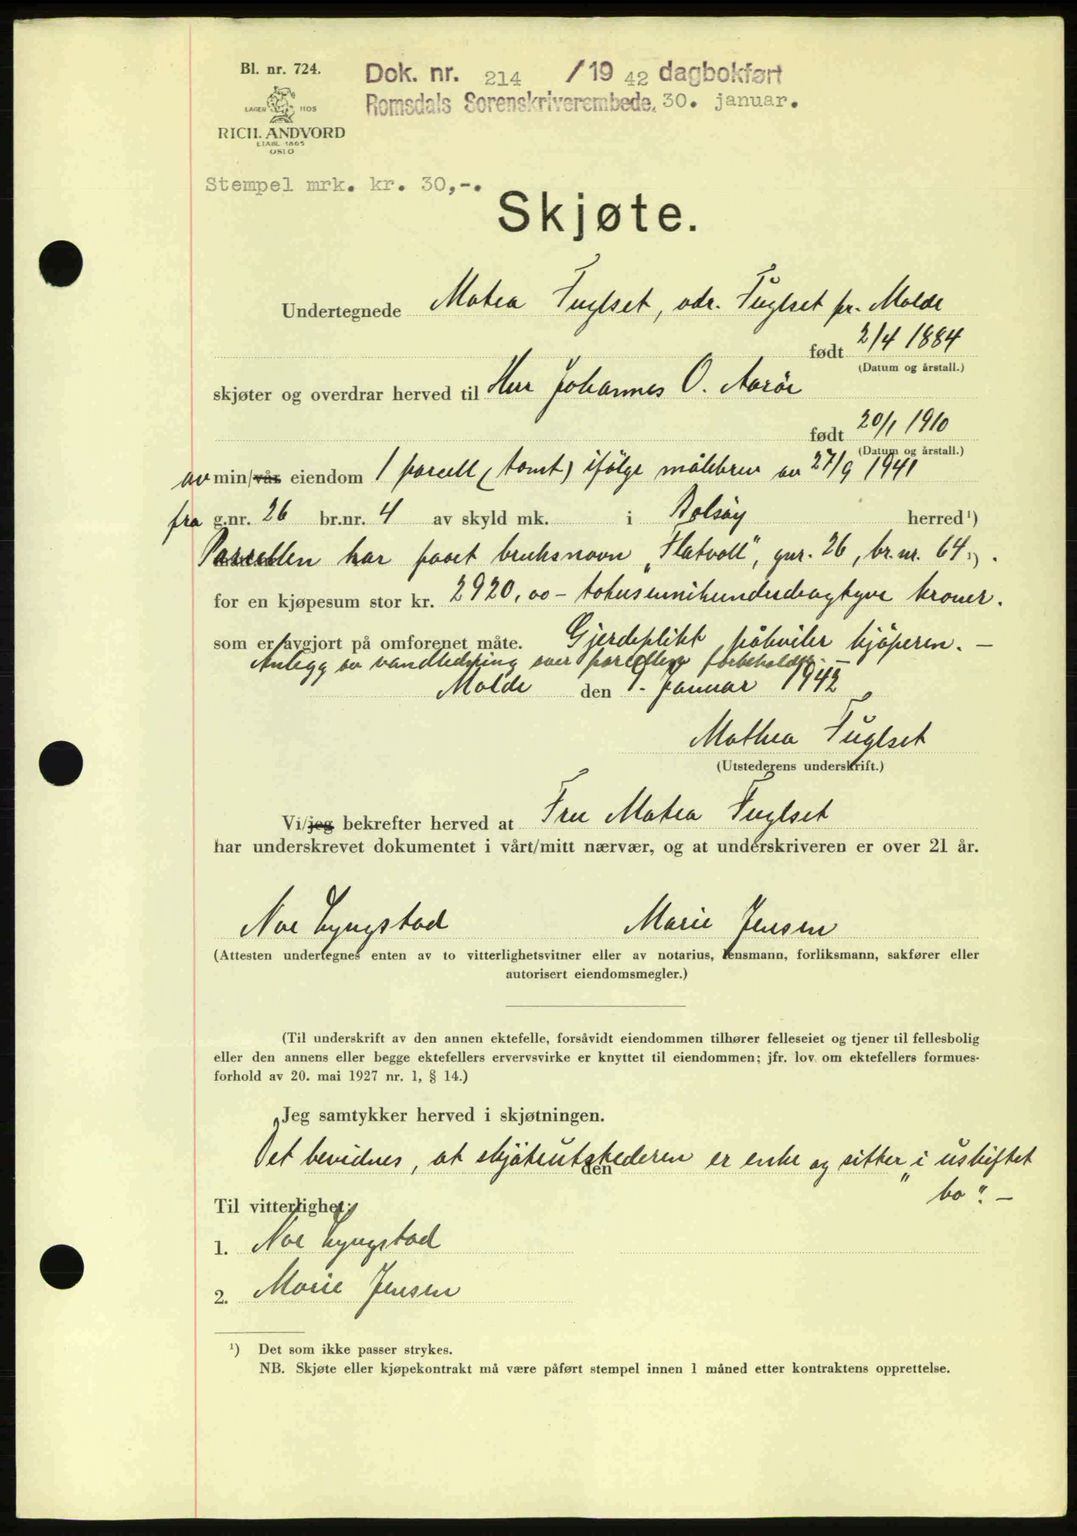 Bl. nr. 724.
LAGER 1105
RICH. ANDVORD
ETABL. 1865
OSLO
Dok. nr. 214 /19 42 dagbokført
Romsdals Sorenskriverembede, 30. januar.
Stempel mrk. kr. 30,-.
Skjøte.
Undertegnede Matea Fuglset, adr. Fuglset pr. Molde
født 2/4 1884
(Datum og årstall.)
skjøter og overdrar herved til Herr Johannes O. Aarøe
født 20/1 1910
(Datum og årstall.)
av min/vår eiendom 1 parcell (tomt) ifølge målebrev av 27/9 1941
fra g.nr. 26 br.nr. 4 av skyld mk. i Bolsøy herred¹)
Parcellen har faaet bruksnavn "Flatvoll", gnr. 26, br. nr. 64¹).
for en kjøpesum stor kr. 2920,00 - totusennihundredeogtyve kroner.
som er avgjort på omforenet måte. Gjerdeplikt påhviler kjøperen. -
Anlegg av vandledning over parcellen forbeholdes. -
Molde den 9. Januar 1942
Mathea Fuglset
(Utstederens underskrift.)
Vi/jeg bekrefter herved at Fru Matea Fuglset
har underskrevet dokumentet i vårt/mitt nærvær, og at underskriveren er over 21 år.
Noe Lyngstad Marie Jensen
(Attesten undertegnes enten av to vitterlighetsvitner eller av notarius, lensmann, forliksmann, sakfører eller
autorisert eiendomsmegler.)
(Til underskrift av den annen ektefelle, forsåvidt eiendommen tilhører felleseiet og tjener til fellesbolig
eller den annens eller begge ektefellers ervervsvirke er knyttet til eiendommen; jfr. lov om ektefellers formues-
forhold av 20. mai 1927 nr. 1, § 14.)
Jeg samtykker herved i skjøtningen.
Det bevidnes, at skjøteutstederen er enke og sitter "i uskiftet
den
bo". -
Til vitterlighet:
1. Noe Lyngstad
2. Marie Jensen
¹) Det som ikke passer strykes.
NB. Skjøte eller kjøpekontrakt må være påført stempel innen 1 måned etter kontraktens opprettelse.